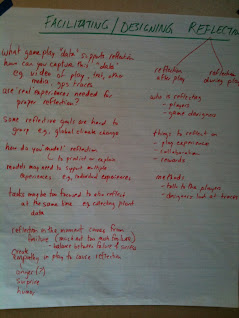 FACILITATING / DESIGNING REFLECTION
what gameplay "data" supports reflection
how can you capture this "data"
e.g. video of play, text, other
media, gps traces
use real experiences needed for
proper reflection?
Some reflection goals are hard to
grasp e.g. global climate change
how do you "model" reflection
to predict or explain
models may need to support multiple
experiences e.g. individual experiences
tasks may be too focused to also reflect
at the same time e.g. collecting plant
data
reflection in the moment comes from
failure (must not too much failure)
- balance between failure & success
Create
empathy in play to cause reflection
anger (?)
surprise
humor
reflection
after play
reflection
during play
who is reflecting
- players
- game designers
things to reflect on
- play experience
- collaboration
- rewards
methods
- talk to the players
- designers look at traces